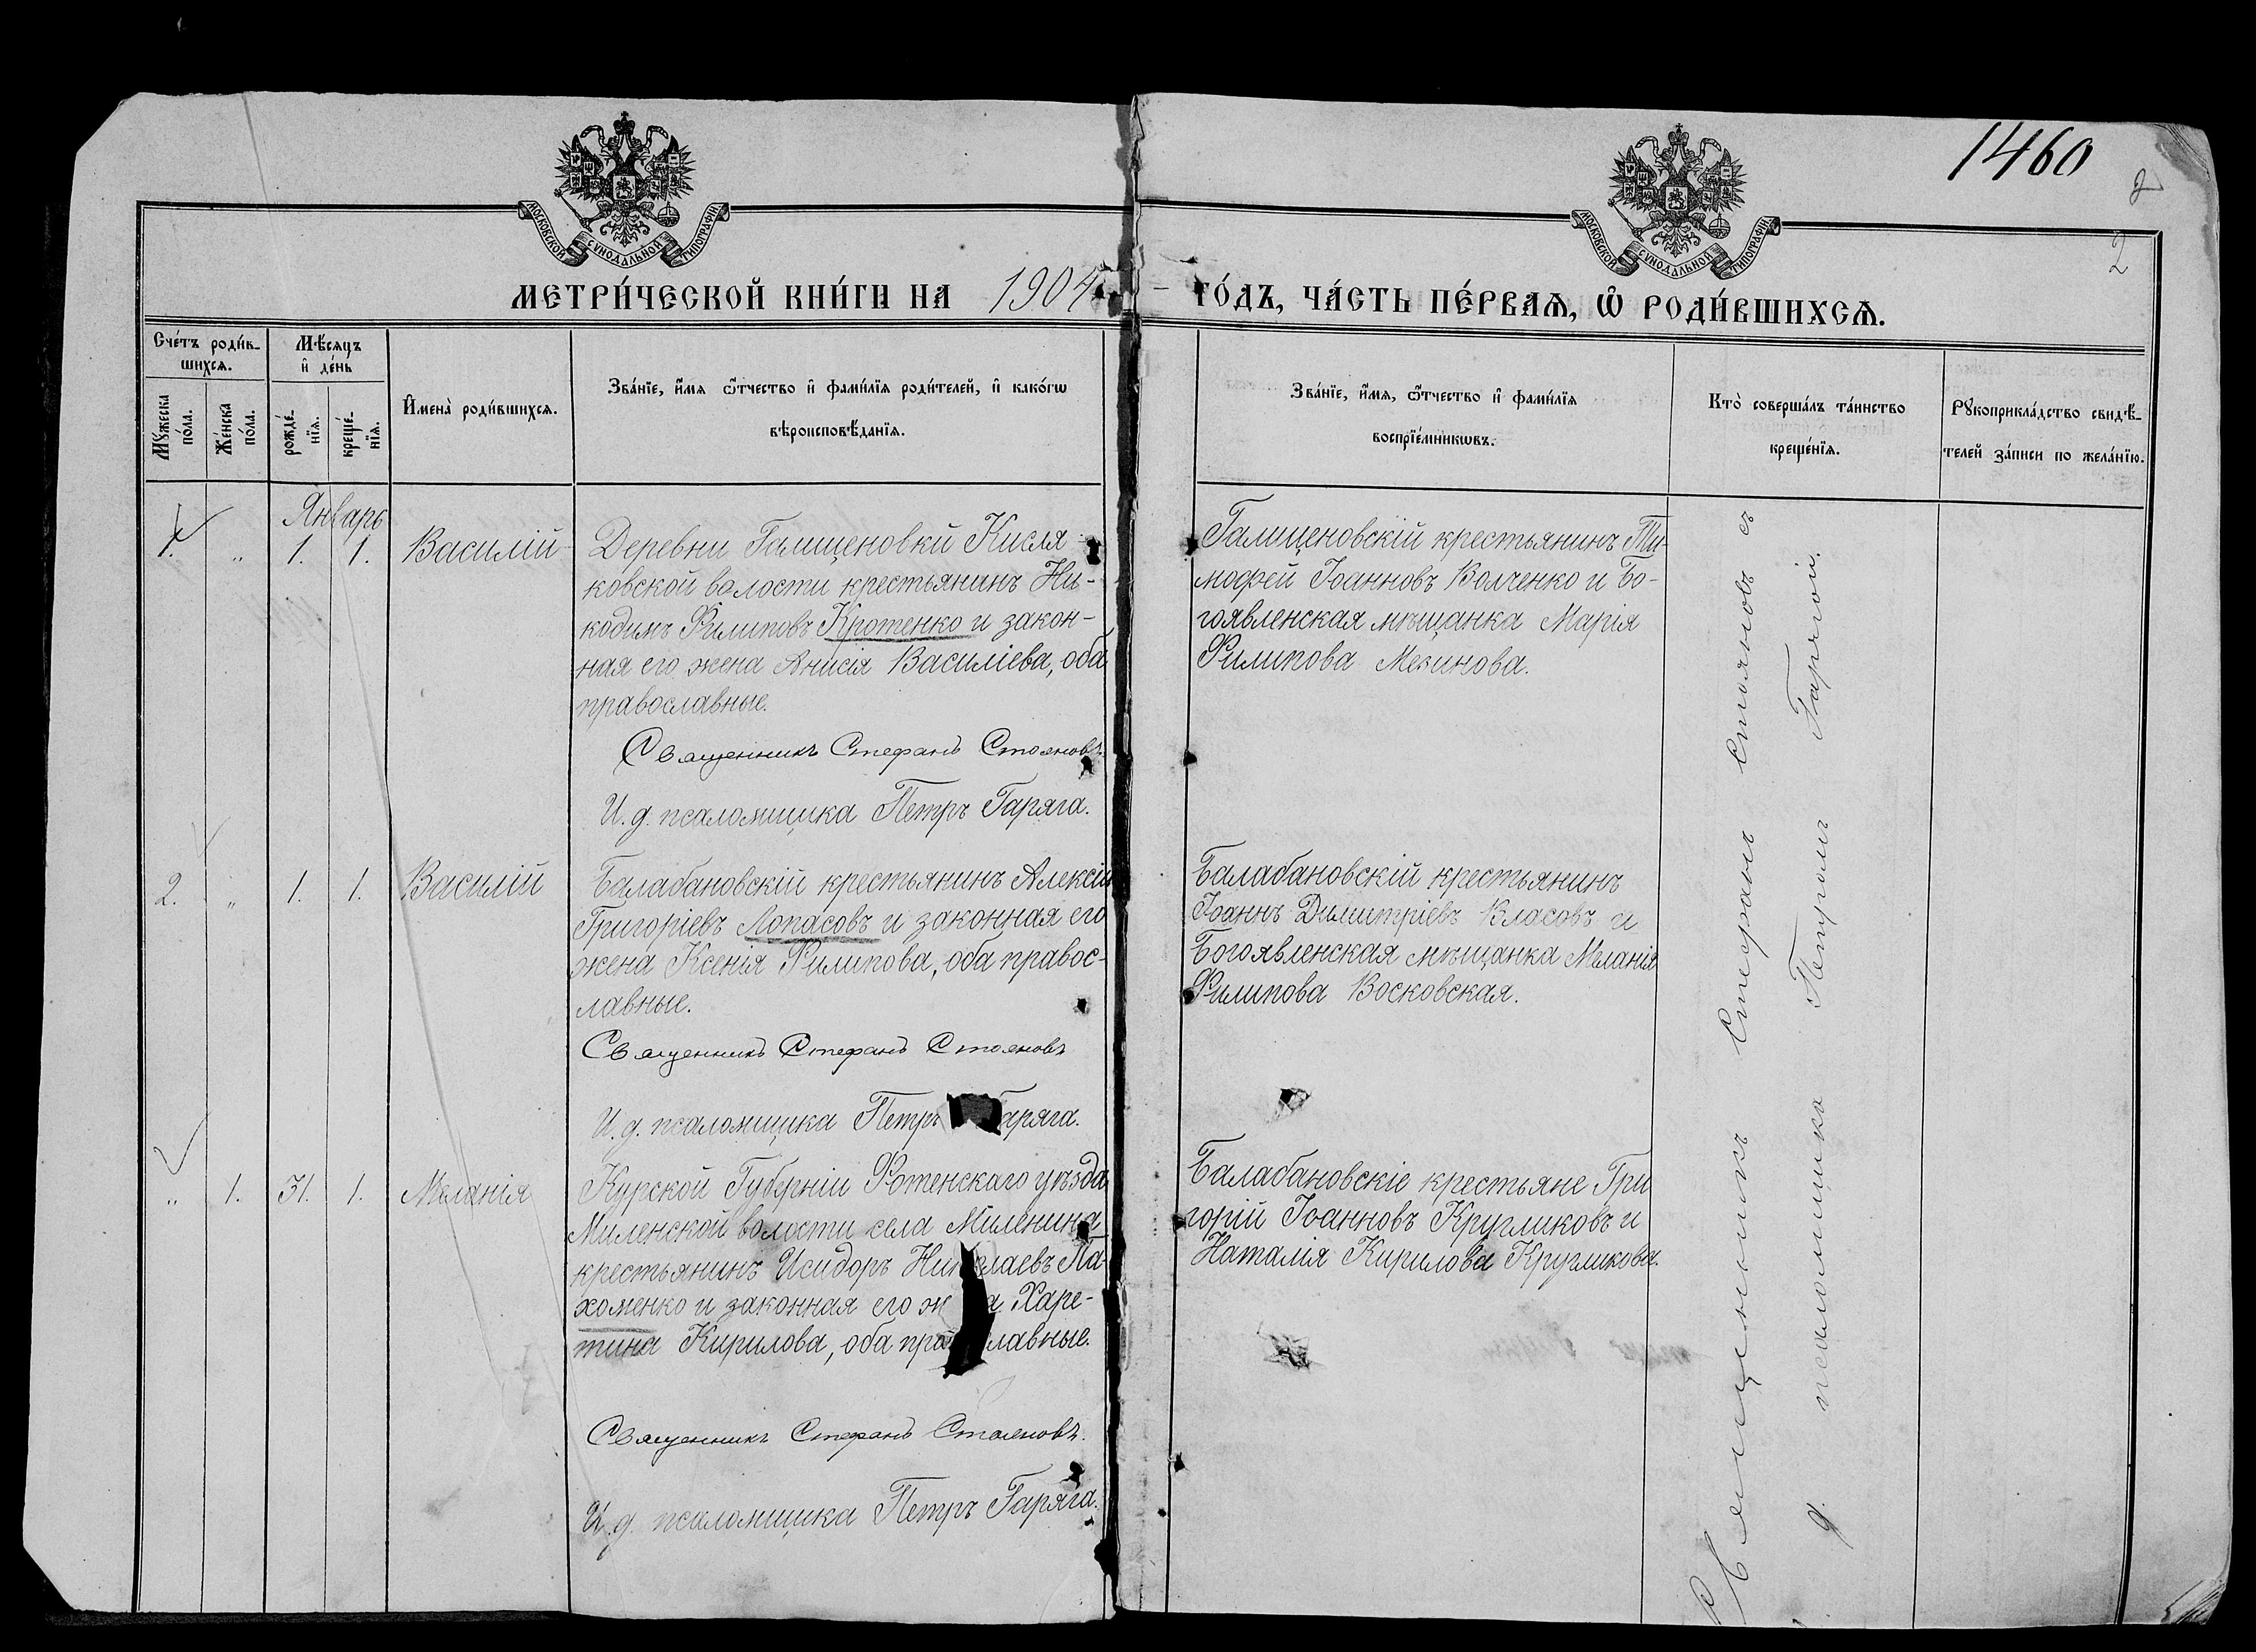 1460
2
2
МОСКОВСКОЙ СѴНОДАЛЬНОЙ ТИПОГРАФІИ
МОСКОВСКОЙ СѴНОДАЛЬНОЙ ТИПОГРАФІИ
МЕТРИ́ЧЕСКОЙ КНИ́ГИ НА 1904 ГО́ДЪ, ЧА́СТЬ ПЕ́РВАѦ, Ѡ҆ РОДИ́ВШИХСѦ.
Сче́тъ роди́в-
шихсѧ.
Мꙋ́жеска по́ла.
Же́нска по́ла.
Мѣ́сѧцъ
и҆ де́нь
рожде́-
нїѧ.
креще́-
нїѧ.
И҆мена̀ роди́вшихсѧ.
Зва́нїе, и҆́мѧ ѻ҆́тчество и҆ фами́лїѧ роди́телей, и҆ како́гѡ
вѣроисповѣ́данїѧ.
Зва́нїе, и҆́мѧ, ѻ҆́тчество и҆ фами́лїѧ
воспрїе́мникѡвъ.
Кто̀ соверша́лъ та́инство
креще́нїѧ.
Рꙋкоприкла́дство свидѣ́-
телей за́писи по жела́нїю.
Январь
1. " 1. 1. Василій
Деревни Галищеновки Кисля-
ковской волости крестьянинъ Ни-
кодимъ Филиповъ Кротенко и закон-
ная его жена Анисія Василіева, оба
православные.
Священникъ Стефанъ Стояновъ.
И. д. псаломщика Петръ Гаряга.
Галищеновскій крестьянинъ Ти-
мофей Іоанновъ Волченко и Бо-
гоявленская мѣщанка Марія
Филипова Мезинова.
2. " 1. 1. Василій
Балабановскій крестьянинъ Алексій
Григоріевъ Лопасовъ и законная его
жена Ксенія Филипова, оба правос-
лавные.
Священникъ Стефанъ Стояновъ
И. д. псаломщика Петръ Гаряга.
Балабановскій крестьянинъ
Іоаннъ Димитріевъ Власовъ и
Богоявленская мѣщанка Меланія
Филипова Восковская.
" 1. 31. 1. Меланія
Курской Губерніи Фотенскаго уѣзда
Миленской волости села Миленина
крестьянинъ Исидоръ Николаевъ Па-
хоменко и законная его жена Харе-
тина Кирилова, оба православные.
Священникъ Стефанъ Стояновъ.
И. д. псаломщика Петръ Гаряга.
Балабановскіе крестьяне Гри
горій Іоанновъ Кругликовъ и
Наталія Кирилова Кругликова.
Священникъ Стефанъ Стояновъ съ
д. псаломщика Петромъ Гарягой.